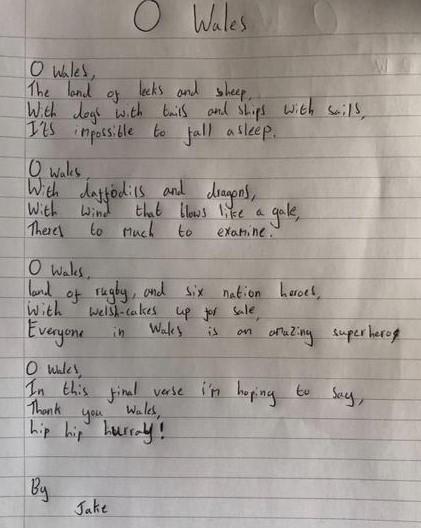 O Wales
O Wales,
The land of leeks and sheep,
With dogs with tails and ships with sails,
I'ts impossible to fall asleep.
O Wales,
With daffodils and dragons,
With wind that blows like a gale,
Theres to much to examine.
O Wales,
land of rugby, and six nation heroes,
With welsh-cakes up for sale,
Everyone in Wales is an amazing superhero
O Wales,
In this final verse i'm hoping to say,
Thank you Wales,
hip hip hurray!
By
Jake